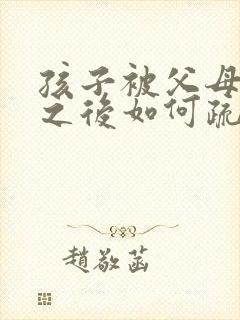 孩子被父母
之後如何疏
趙敬菡